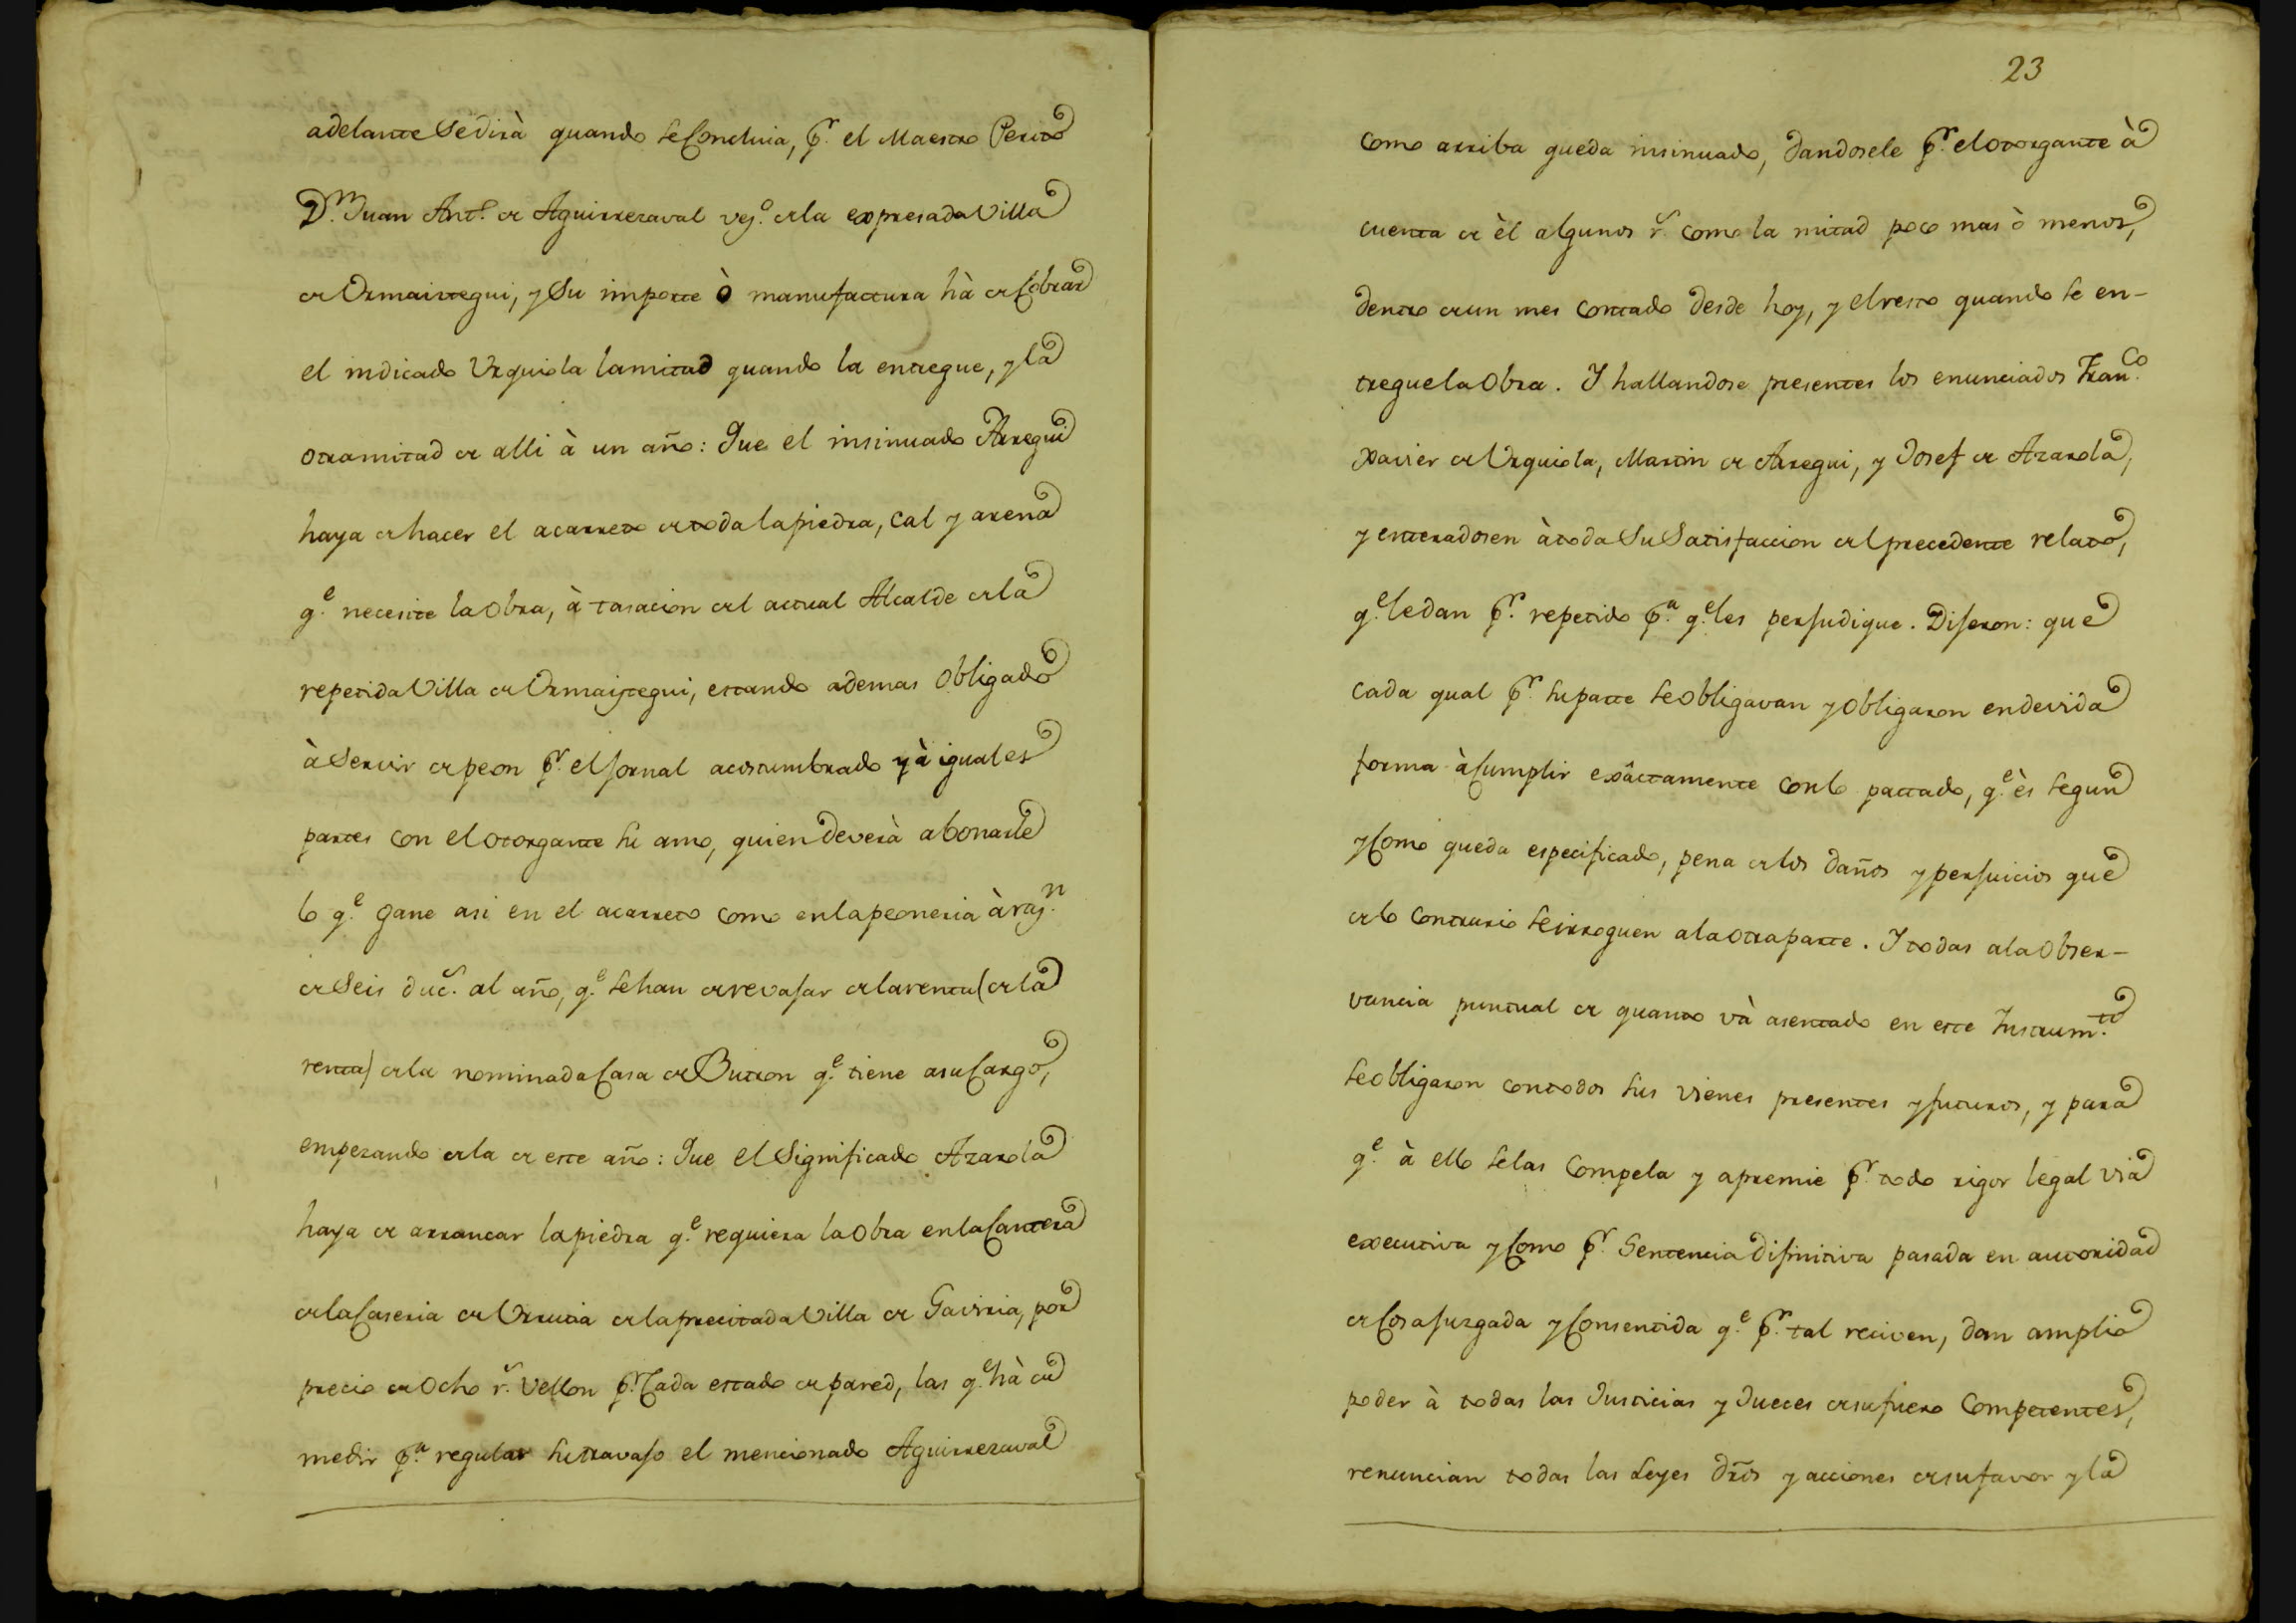 adelante sedirà quando se Concluia, p.r el Maestro Perito
D.n Juan Ant.o de Aguirrezaval vez.o de la expresada Villa
de Ormaiztegui, y su importe ò manufactura hà de Cobrar
el indicado Urquiola la mitad quando la entregue, y la
otra mitad de alli à un año: Que el insinuado Arregui
haya de hacer el acarreto de toda la piedra, Cal y arena
q.e necesite la Obra, à tasacion del actual Alcalde de la
repetida Villa de Ormaiztegui, estando ademas Obligado
à Servir de peon p.r el jornal acostumbrado y à iguales
partes con el otorgante su amo, quien deverà abonarle
lo q.e gane asi en el acarreto como en la peoneria à raz.n
de Seis duc.s al año, q.e se han de revajar de la renta (de la
renta) de la nominada Casa de Butron q.e tiene a su Cargo,
empezando de la de este año: Que el Significado Azarola
haya de arrancar la piedra q.e requiera la Obra en la Cantera
de la Caseria de Urrutia de la precitada Villa de Gaviria, por
precio de Ocho r.s Vellon p.r Cada estado de pared, las q.e hà de
medir p.a regular su travajo el mencionado Aguirrezaval
23
Como arriba queda insinuado, dandosele p.r el otorgante à
cuenta de èl algunos r.s como la mitad poco mas ò menos,
dentro de un mes contado desde hoy, y el resto quando se en-
tregue la Obra. I hallandose presentes los enunciados Fran.co
Xavier de Urquiola, Martin de Arregui, y Josef de Azarola,
y enteradosen à toda su Satisfaccion del precedente relato,
q.e le dan p.r repetido p.a q.e les perjudique. Dijeron: que
cada qual p.r su parte se obligavan y Obligaron en devida
forma à Cumplir exâctamente con lo pactado, q.e ès segun
y Como queda especificado, pena de los daños y perjuicios que
de lo Contrario se irroguen a la otra parte. I todas a la Obser-
vancia puntual de quanto và asentado en este Instrum.to
se obligaron con todos sus vienes presentes y futuros, y para
q.e à ello se las Compela y apremie p.r todo rigor legal via
executiva y Como p.r Sentencia difinitiva pasada en autoridad
de Cosa juzgada y Consentida q.e p.r tal reciven, dan amplio
poder à todas las Justicias y Jueces de su fuero Competentes,
renuncian todas las Leyes dros y acciones de su favor y la